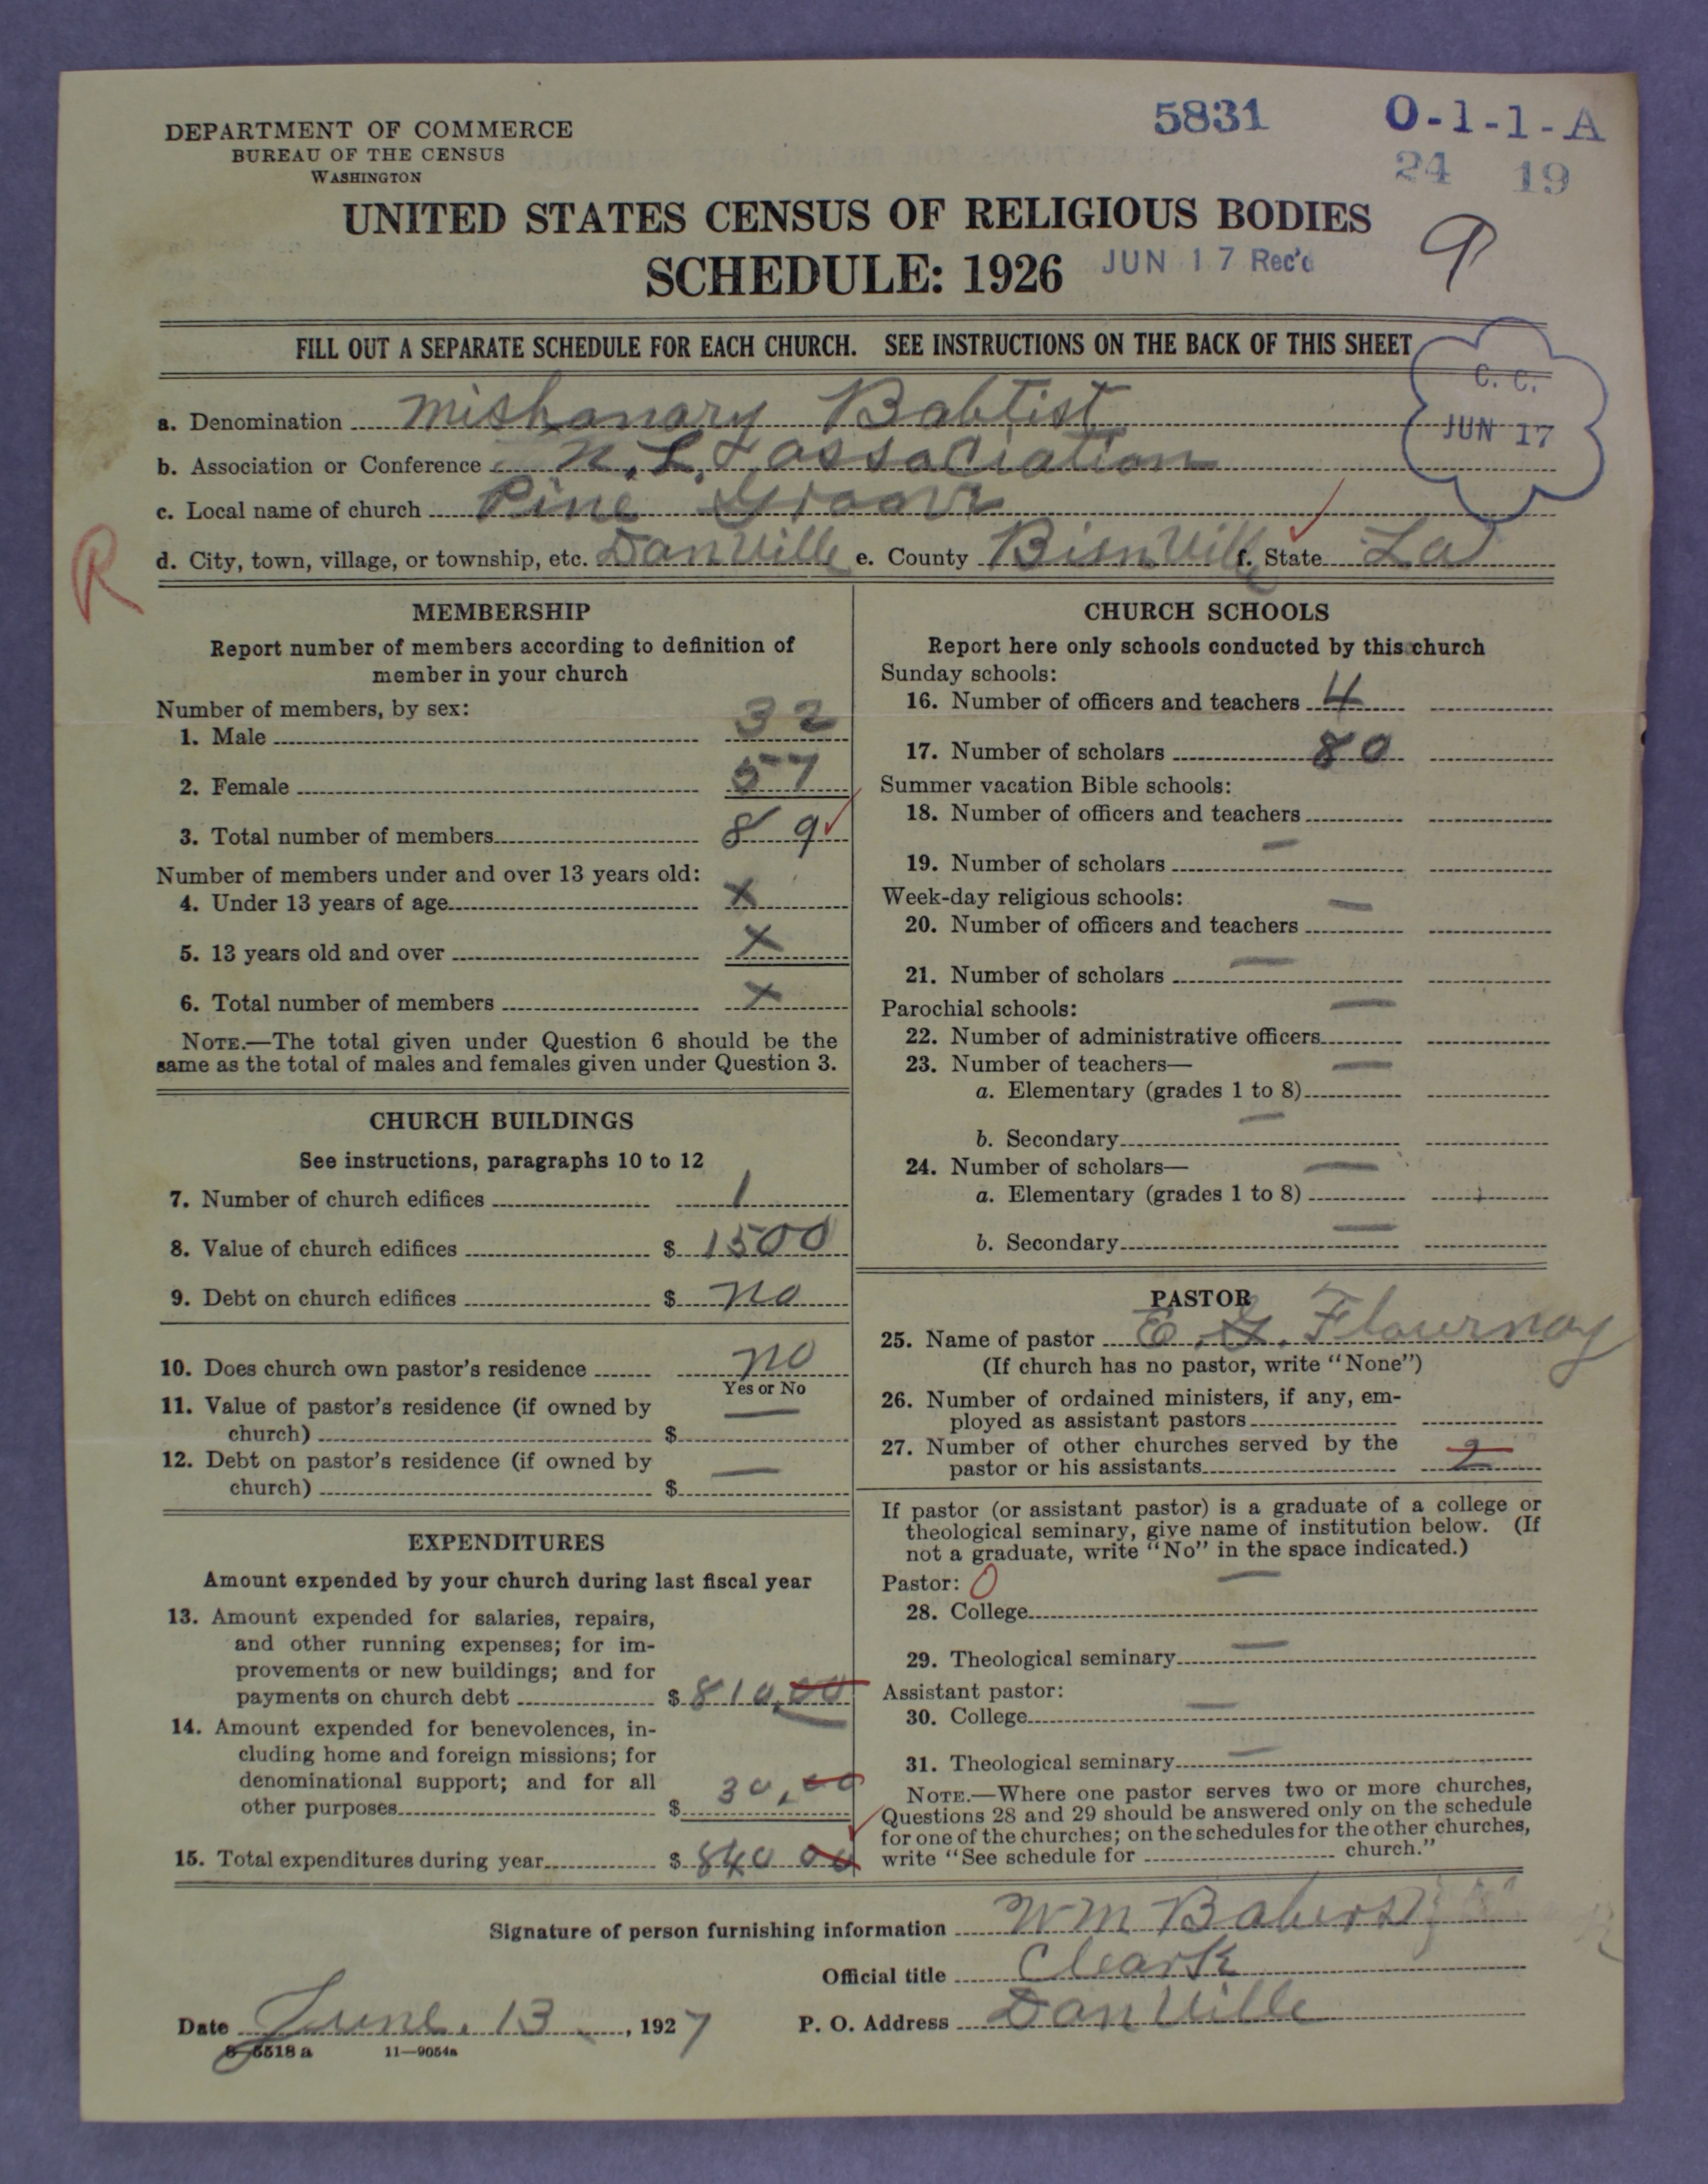 5831 O-1-1-A
DEPARTMENT OF COMMERCE
BUREAU OF THE CENSUS
WASHINGTON
24 19
UNITED STATES CENSUS OF RELIGIOUS BODIES
SCHEDULE: 1926 JUN 17 Rec'd
9
FILL OUT A SEPARATE SCHEDULE FOR EACH CHURCH. SEE INSTRUCTIONS ON THE BACK OF THIS SHEET
C. C.
JUN 17
a. Denomination mishanary Babtist
b. Association or Conference N. L. association
c. Local name of church Pine Groove
d. City, town, village, or township, etc. DanVille e. County BienVille f. State La
R
MEMBERSHIP
Report number of members according to definition of
member in your church
Number of members, by sex:
1. Male 32
2. Female 57
3. Total number of members 89
Number of members under and over 13 years old:
4. Under 13 years of age X
5. 13 years old and over X
6. Total number of members X
NOTE.—The total given under Question 6 should be the
same as the total of males and females given under Question 3.
CHURCH BUILDINGS
See instructions, paragraphs 10 to 12
7. Number of church edifices 1
8. Value of church edifices $ 1500
9. Debt on church edifices $ no
10. Does church own pastor's residence no
Yes or No
11. Value of pastor's residence (if owned by
church) $ —
12. Debt on pastor's residence (if owned by
church) $ —
EXPENDITURES
Amount expended by your church during last fiscal year
13. Amount expended for salaries, repairs,
and other running expenses; for im-
provements or new buildings; and for
payments on church debt $ 810.00
14. Amount expended for benevolences, in-
cluding home and foreign missions; for
denominational support; and for all
other purposes $ 30.00
15. Total expenditures during year $ 840 00
CHURCH SCHOOLS
Report here only schools conducted by this church
Sunday schools:
16. Number of officers and teachers 4
17. Number of scholars 80
Summer vacation Bible schools:
18. Number of officers and teachers
19. Number of scholars —
Week-day religious schools:
20. Number of officers and teachers —
21. Number of scholars —
Parochial schools:
22. Number of administrative officers —
23. Number of teachers—
a. Elementary (grades 1 to 8) —
b. Secondary —
24. Number of scholars—
a. Elementary (grades 1 to 8) —
b. Secondary —
PASTOR
25. Name of pastor E. G. Flournoy
(If church has no pastor, write "None")
26. Number of ordained ministers, if any, em-
ployed as assistant pastors
27. Number of other churches served by the
pastor or his assistants 2
If pastor (or assistant pastor) is a graduate of a college or
theological seminary, give name of institution below. (If
not a graduate, write "No" in the space indicated.)
Pastor: 0
28. College —
29. Theological seminary —
Assistant pastor:
30. College —
31. Theological seminary —
NOTE.—Where one pastor serves two or more churches,
Questions 28 and 29 should be answered only on the schedule
for one of the churches; on the schedules for the other churches,
write "See schedule for church."
Signature of person furnishing information Wm Babers
Official title Cleark
Date June. 13, 1927 P. O. Address DanVille
8-5518 a 11—9054a